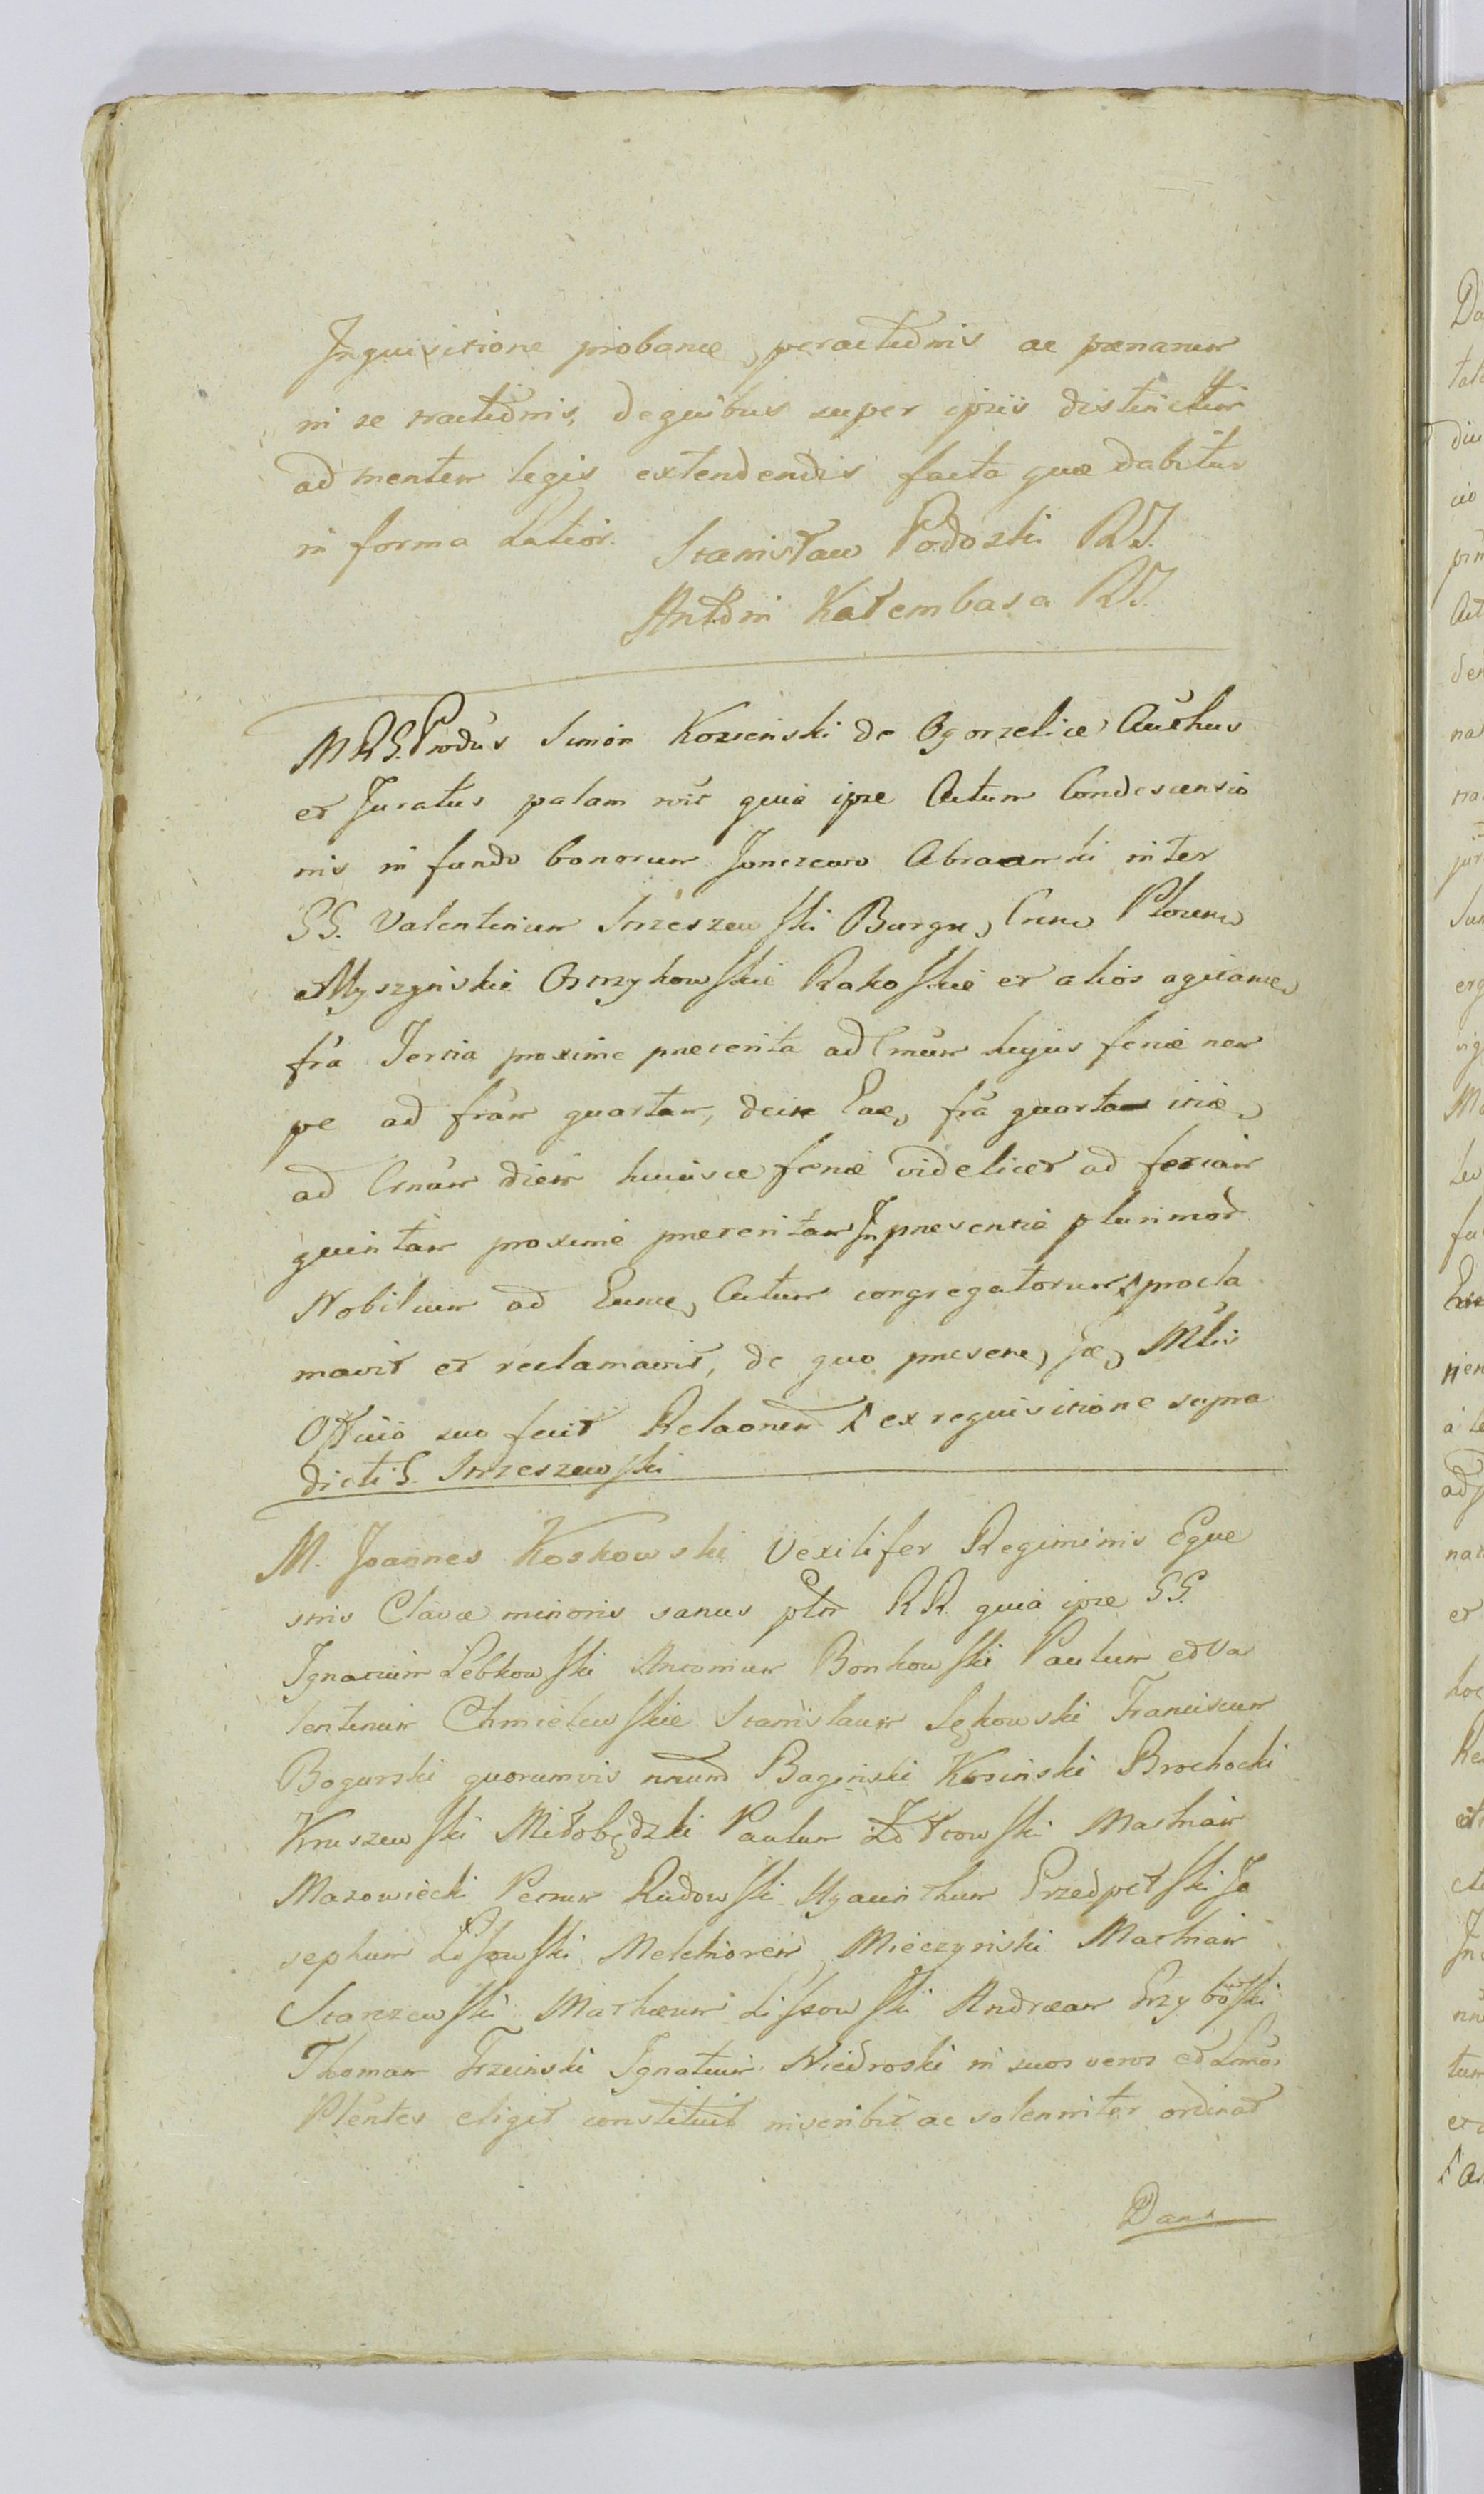 Inquisitione probanue, peractudinis ac pænarum
in se tractudinis, dequibus super ipsis distinction
ad mentem legis extendendis facta quæ dabitur
in forma Latior. Stanisław Podoski RI.
Antoni Katembasa RI.
M R G. Prodūs Simon Kozienski de Ogorzelice Authus
et Juratus palam quia ipse Actum Condescensio
nis in fundo bonorum Jonczewo Abramki inter
GG. Valentinum Strzeszewski Burgn, Cnne, Plocen,
Myszynskie Ostrzykowskie Rakoskie et alios agitanue,
fra Tertia proxime præterita ad Cmum hujus feriæ nem
pe ad fram quartam, dein Eae, fra quarta
ad Cmam diem huiusce feriæ videlicet ad feriam
quintam proxime præteritam In præsentia plurimor
Nobilium ad Eunue, Actum congregatorum procla
mavit et reclamavit, de quo præsene, Mlis
Officio suo fecit Relaonem ex requisitione supra
dicti G. Strzeszewski
M. Joannes Koskowski Vexilifer Regiminis Eque
stris Clavæ minoris sanus ptm RR. quia ipse GG.
Ignatium Lebkowski Antonium Bonkowski Paulum et Va
lentinum Chmielewskie Stanislaum Sękowski Franciscum
Bogurski quorumvis nnum Baginski Kosinski Brochocki
Kruszewski Miłobędzki Paulum Żółtowski Mathiam
Mazowiecki Petrum Rudowski Hyacinthum Przedpełski Jo
sephum Lisowski Melchiorem Mieczynski Mathiam
Starzewski Mathæum Lissowski Andræam Grzybowski
Thomam Trzcinski Ignatium Niedroski in suos veros et Lmos
Plentes eligit constituit inscribit ac solenniter ordinat
Dans